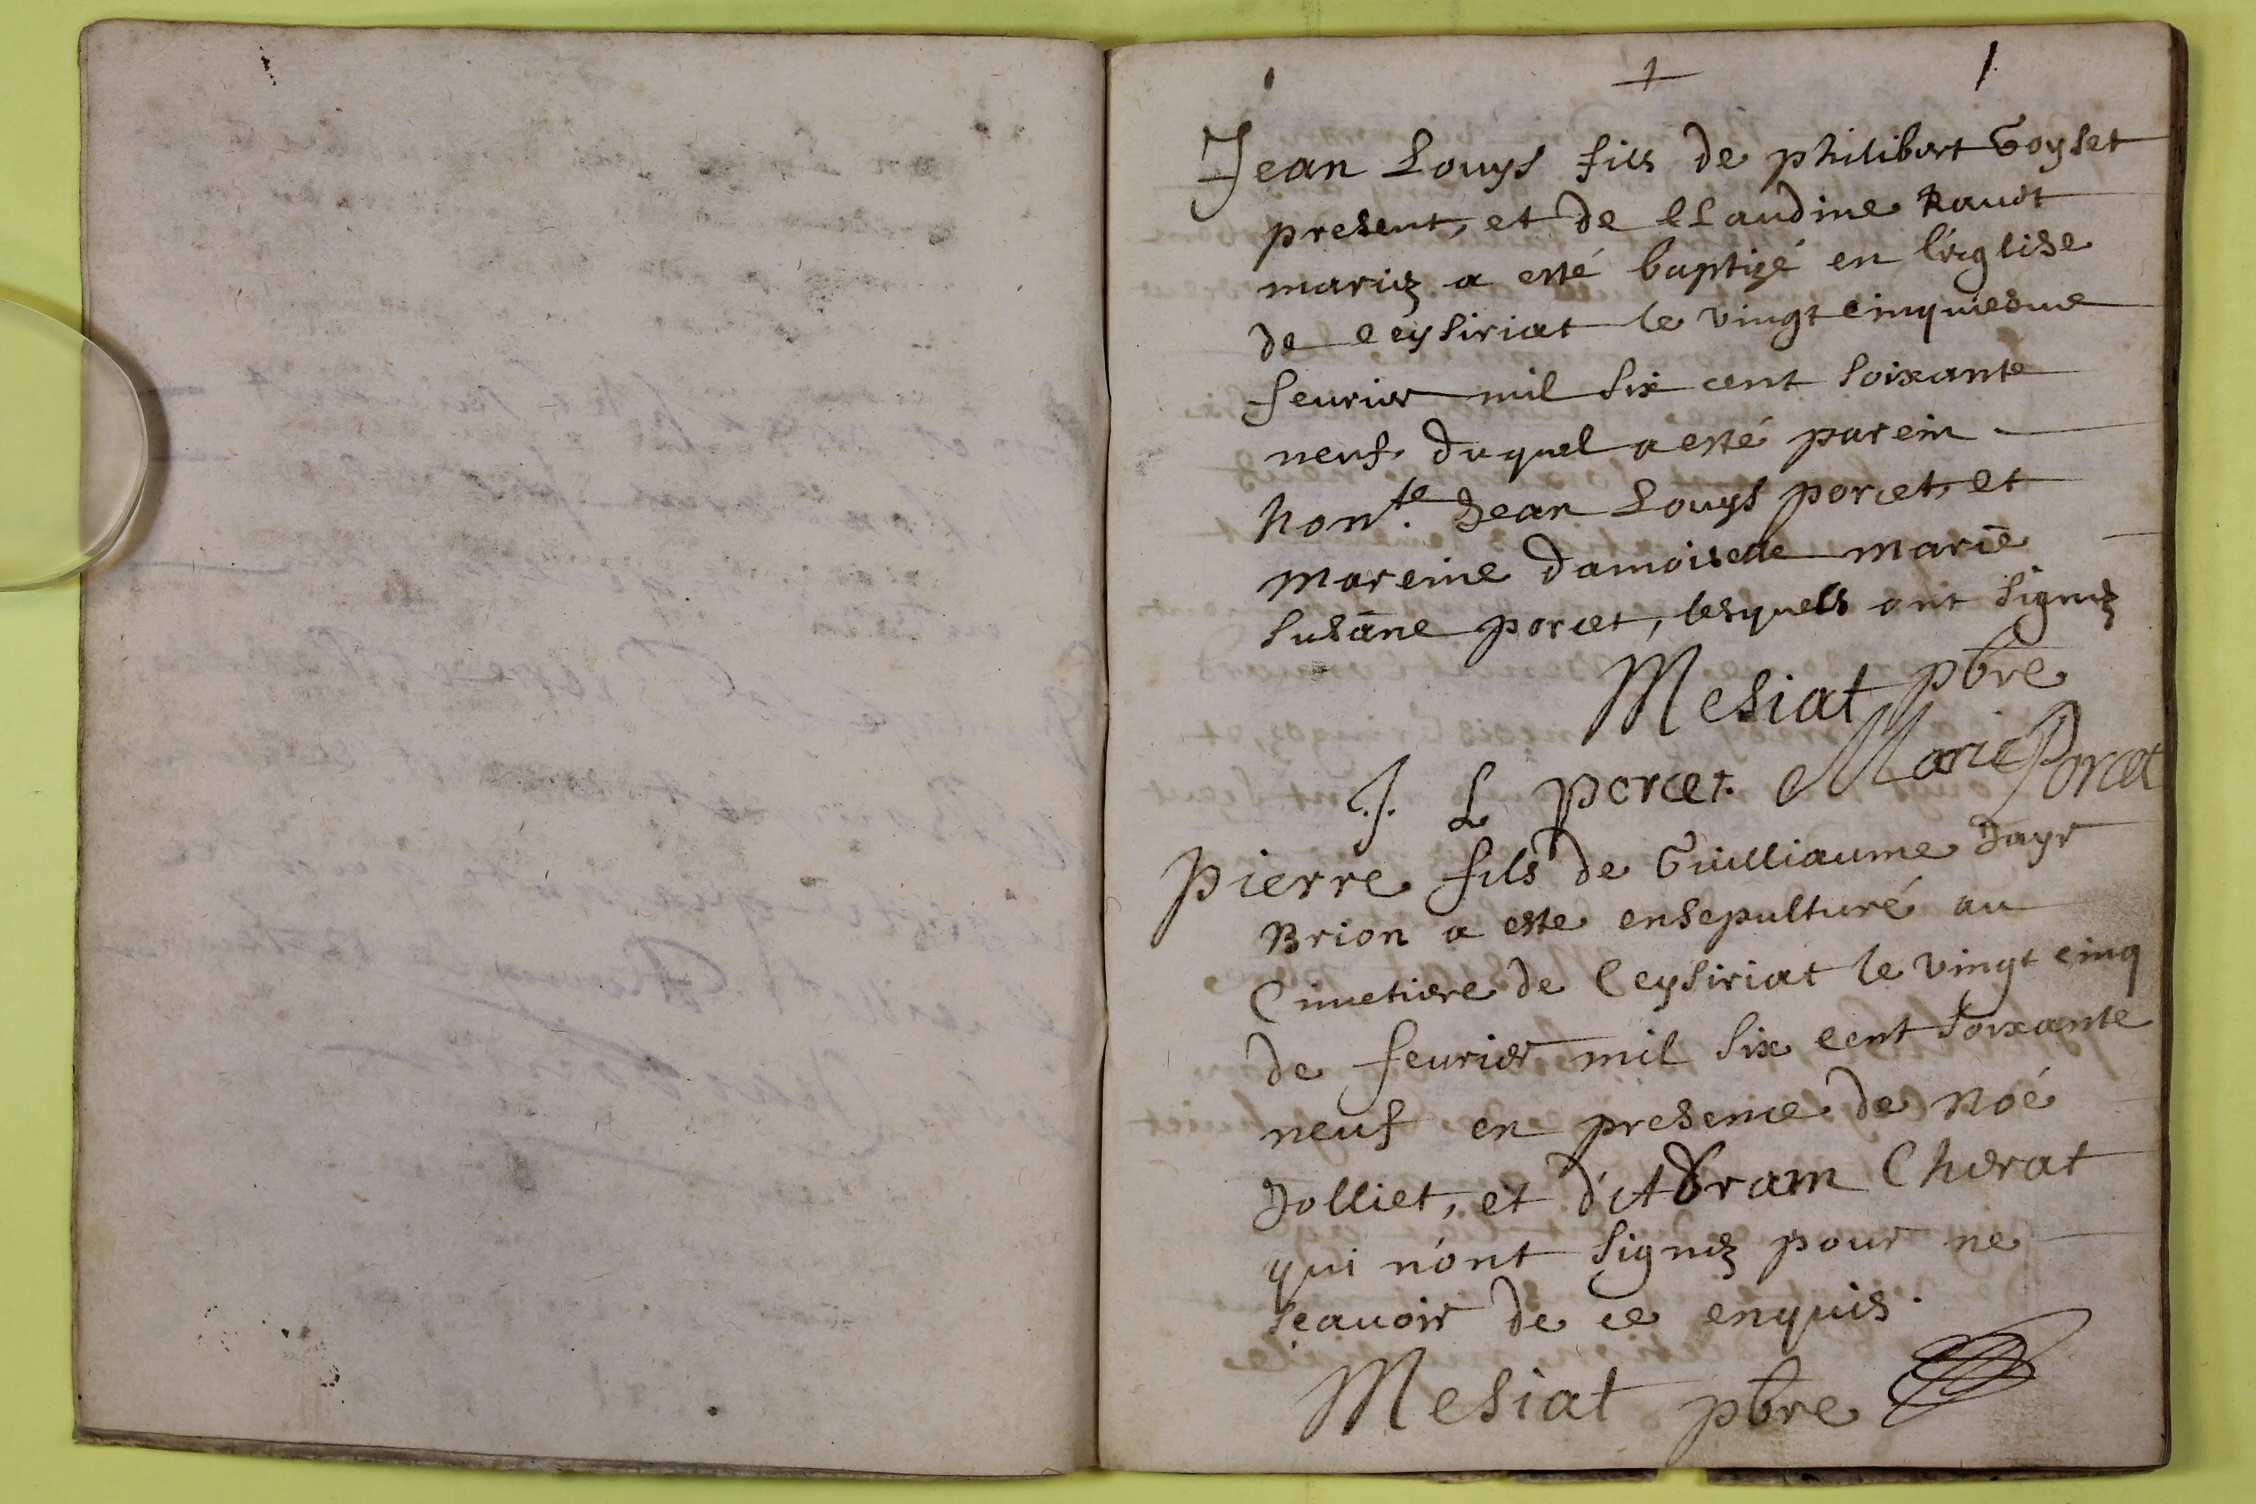 1
Jean Louys fils de philibert Goyset
present, et de Claudine Ravot
mariez a esté baptizé en l'eglise
de Ceysiriat le vingt cinquiesme
feurier mil six cent soixante
neuf duquel a esté parein
hon.te Jean Louys porcet, et
mareine damoiselle marie
susāne porcet, lesquels ont signez
Mesiat pbre
J. L porcet. Marie Porcet
Pierre fils de Guilliaume Jayr
Brion a este ensepulturé au
Cimetiere de Ceysiriat le vingt cinq
de feurier mil six cent soixante
neuf en presence de Noé
Jolliet, et d'Abram Cherat
qui n'ont signez pour ne
scauoir de ce enquis.
Mesiat pbre